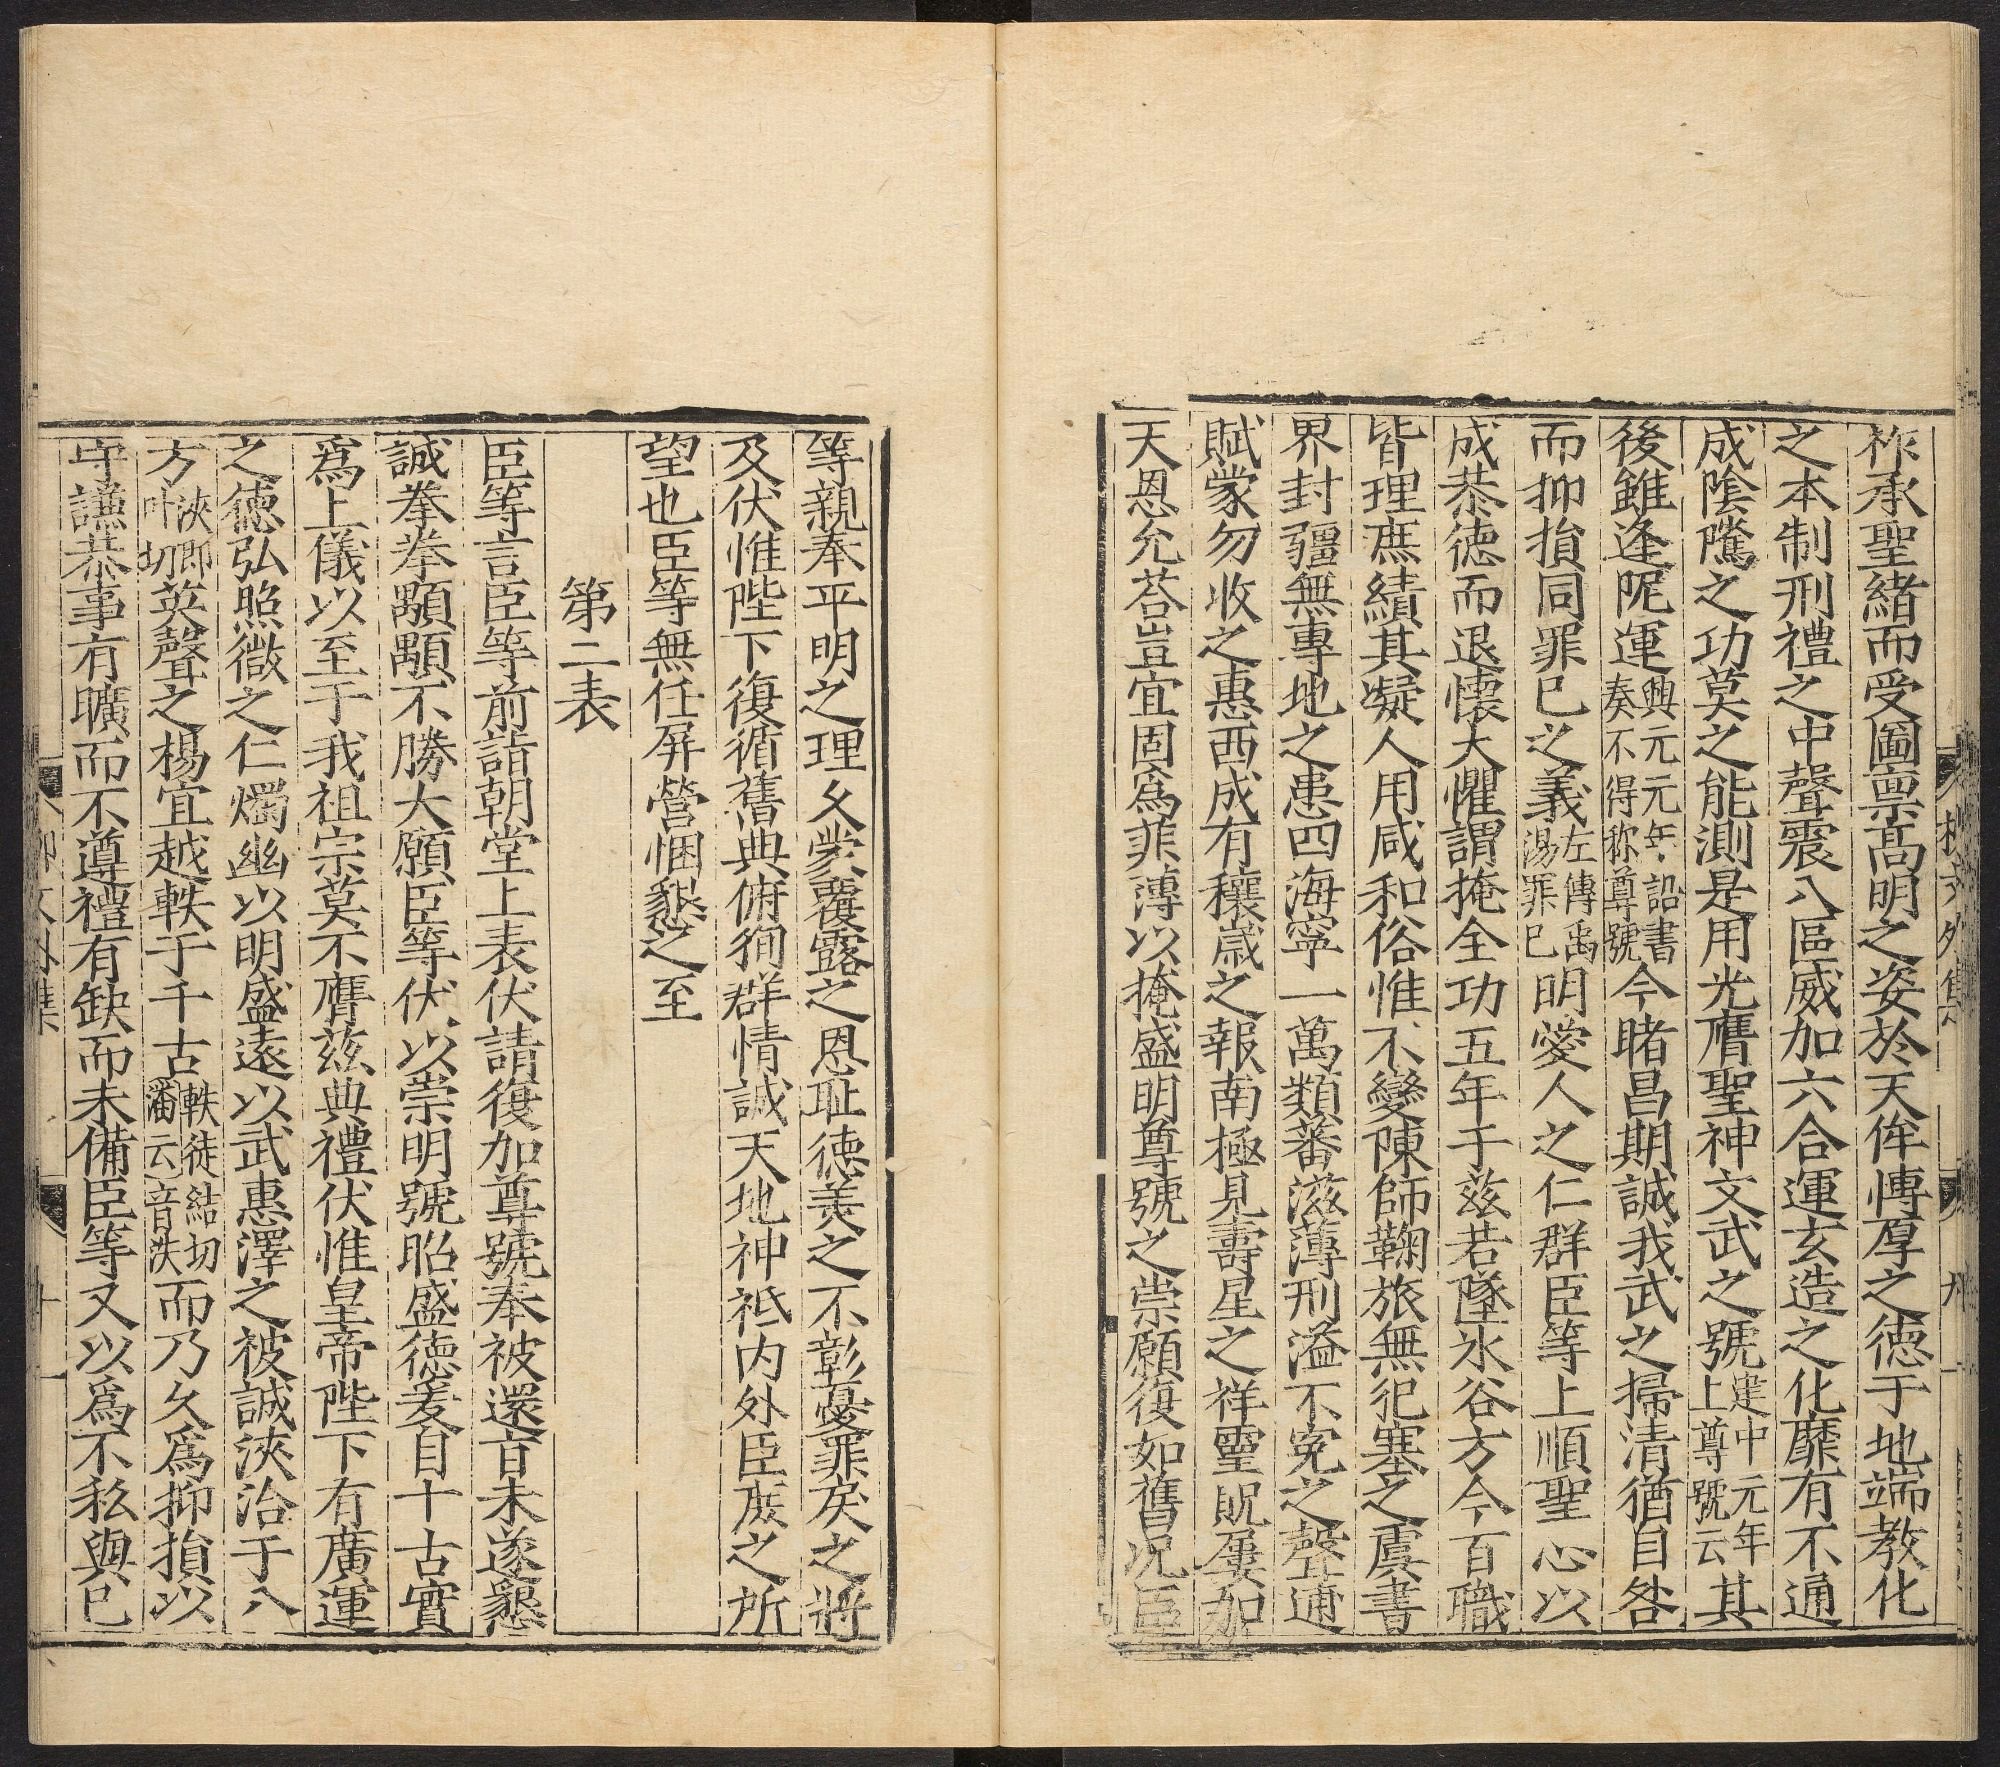 祚承聖緒而受圖禀髙明之姿於天侔慱厚之德于地端教化
之本制刑禮之中聲震八區威加六合運玄造之化靡有不通
成陰隲之功莫之能測是用光膺聖神文武之號建中元年上尊號云其
後雖逢阸運興元元年詔書奏不得称尊號今睹昌期誠我武之掃清猶自咎
而抑損同罪已之義左傳禹湯罪已明愛人之仁群臣等上順聖心以
成恭德而退懐大懼謂掩全功五年于兹若墜氷谷方今百職
皆理庶績其凝人用咸和俗惟不變陳師鞠旅無犯塞之虞書
界封疆無專地之患四海寧一萬類蕃滋薄刑溢不寃之聲逋
賦蒙勿收之惠西成有穰歳之報南極見壽星之祥靈貺屢加
天恩允荅豈宜固爲菲薄以掩盛明尊號之崇願復如舊况臣
等親奉平明之理乆蒙覆露之恩耻德美之不彰憂罪戾之將
及伏惟陛下復循舊典俯徇群情誠天地神祗内外臣庶之所
望也臣等無任屏營悃懇之至
第二表
臣等言臣等前詣朝堂上表伏請復加尊號奉被還旨未遂懇
誠拳拳顒顒不勝大願臣等伏以崇明號昭盛德爰自十古實
爲上儀以至于我祖宗莫不膺兹典禮伏惟皇帝陛下有廣運
之德弘照微之仁燭幽以明盛遠以武惠澤之被誠浹洽于八
方浹即叶切英聲之楊宜越軼于千古軼徒結切潘云音泆而乃乆爲抑損以
守謙恭事有曠而不遵禮有缺而未備臣等又以爲不私與已